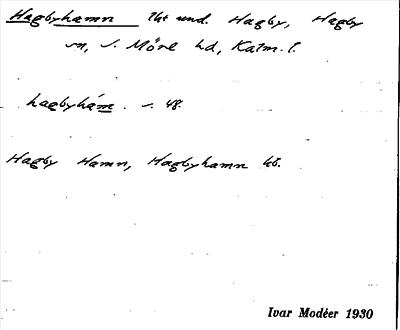 Hagbyhamn Tht und. Hagby, Hagby
sn, S. Möre hd, Kalm. l.
hagbyhám. s. 48.
Hagby Hamn, Hagbyhamn kö.
Ivar Modéer 1930